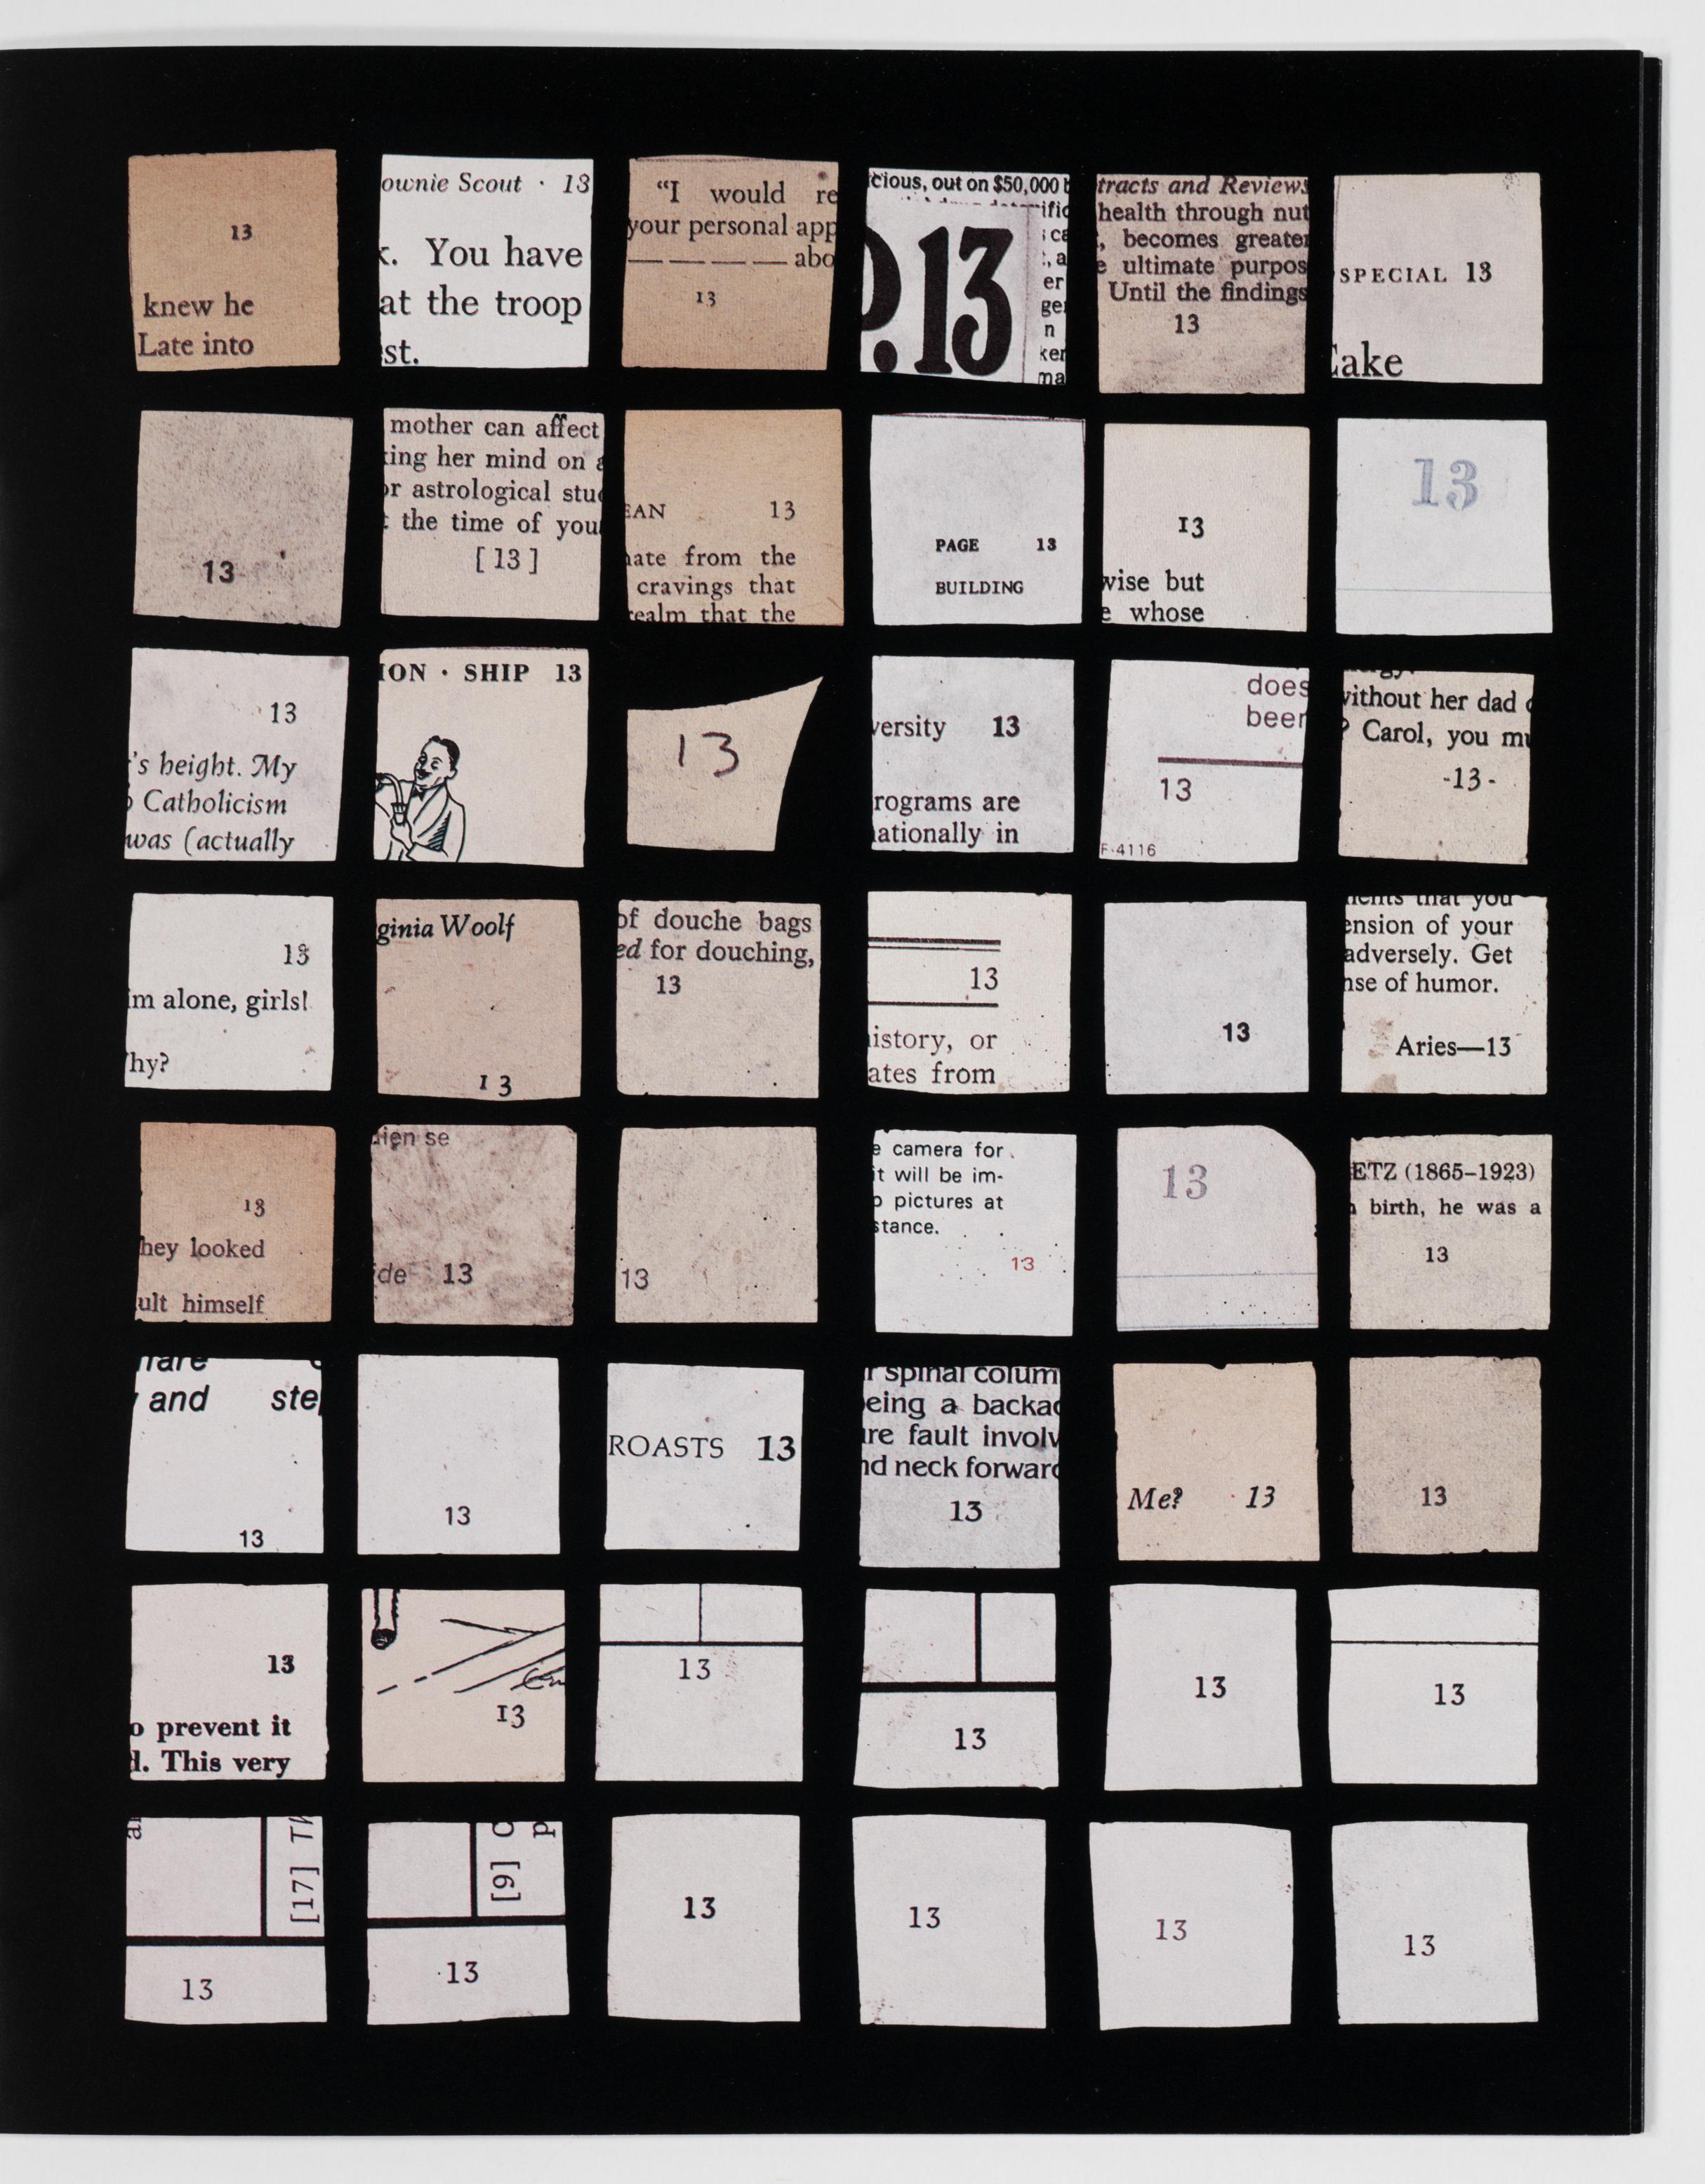 13
knew he
Late into
ownie Scout · 13
k. You have
at the troop
st.
"I would re
your personal app
— — — — abo
13
cious, out on $50,000 b
ific
P.13
s ca
:, a
er
ge
n
ker
ma
tracts and Reviews
health through nut
, becomes greater
e ultimate purpos
Until the findings
13
SPECIAL 13
Cake
13
mother can affect
king her mind on a
or astrological stud
t the time of your
[ 13 ]
EAN 13
nate from the
cravings that
realm that the
PAGE 13
BUILDING
13
wise but
e whose
13
13
's height. My
o Catholicism
was (actually
ION · SHIP 13
13
versity 13
rograms are
nationally in
does
been
13
F-4116
without her dad
? Carol, you mu
-13-
13
im alone, girls!
hy?
ginia Woolf
13
of douche bags
ed for douching,
13
13
history, or
ates from
13
ments that you
ension of your
adversely. Get
nse of humor.
Aries—13
13
hey looked
ult himself
dien se
ide 13
13
e camera for
it will be im-
p pictures at
stance.
13
13
ETZ (1865–1923)
n birth, he was a
13
hare
y and step
13
13
ROASTS 13
r spinal colum
being a backac
ure fault involv
nd neck forward
13
Me? 13
13
13
o prevent it
d. This very
13
13
13
13
13
a
[17] Th
13
[9] C
p
13
13
13
13
13